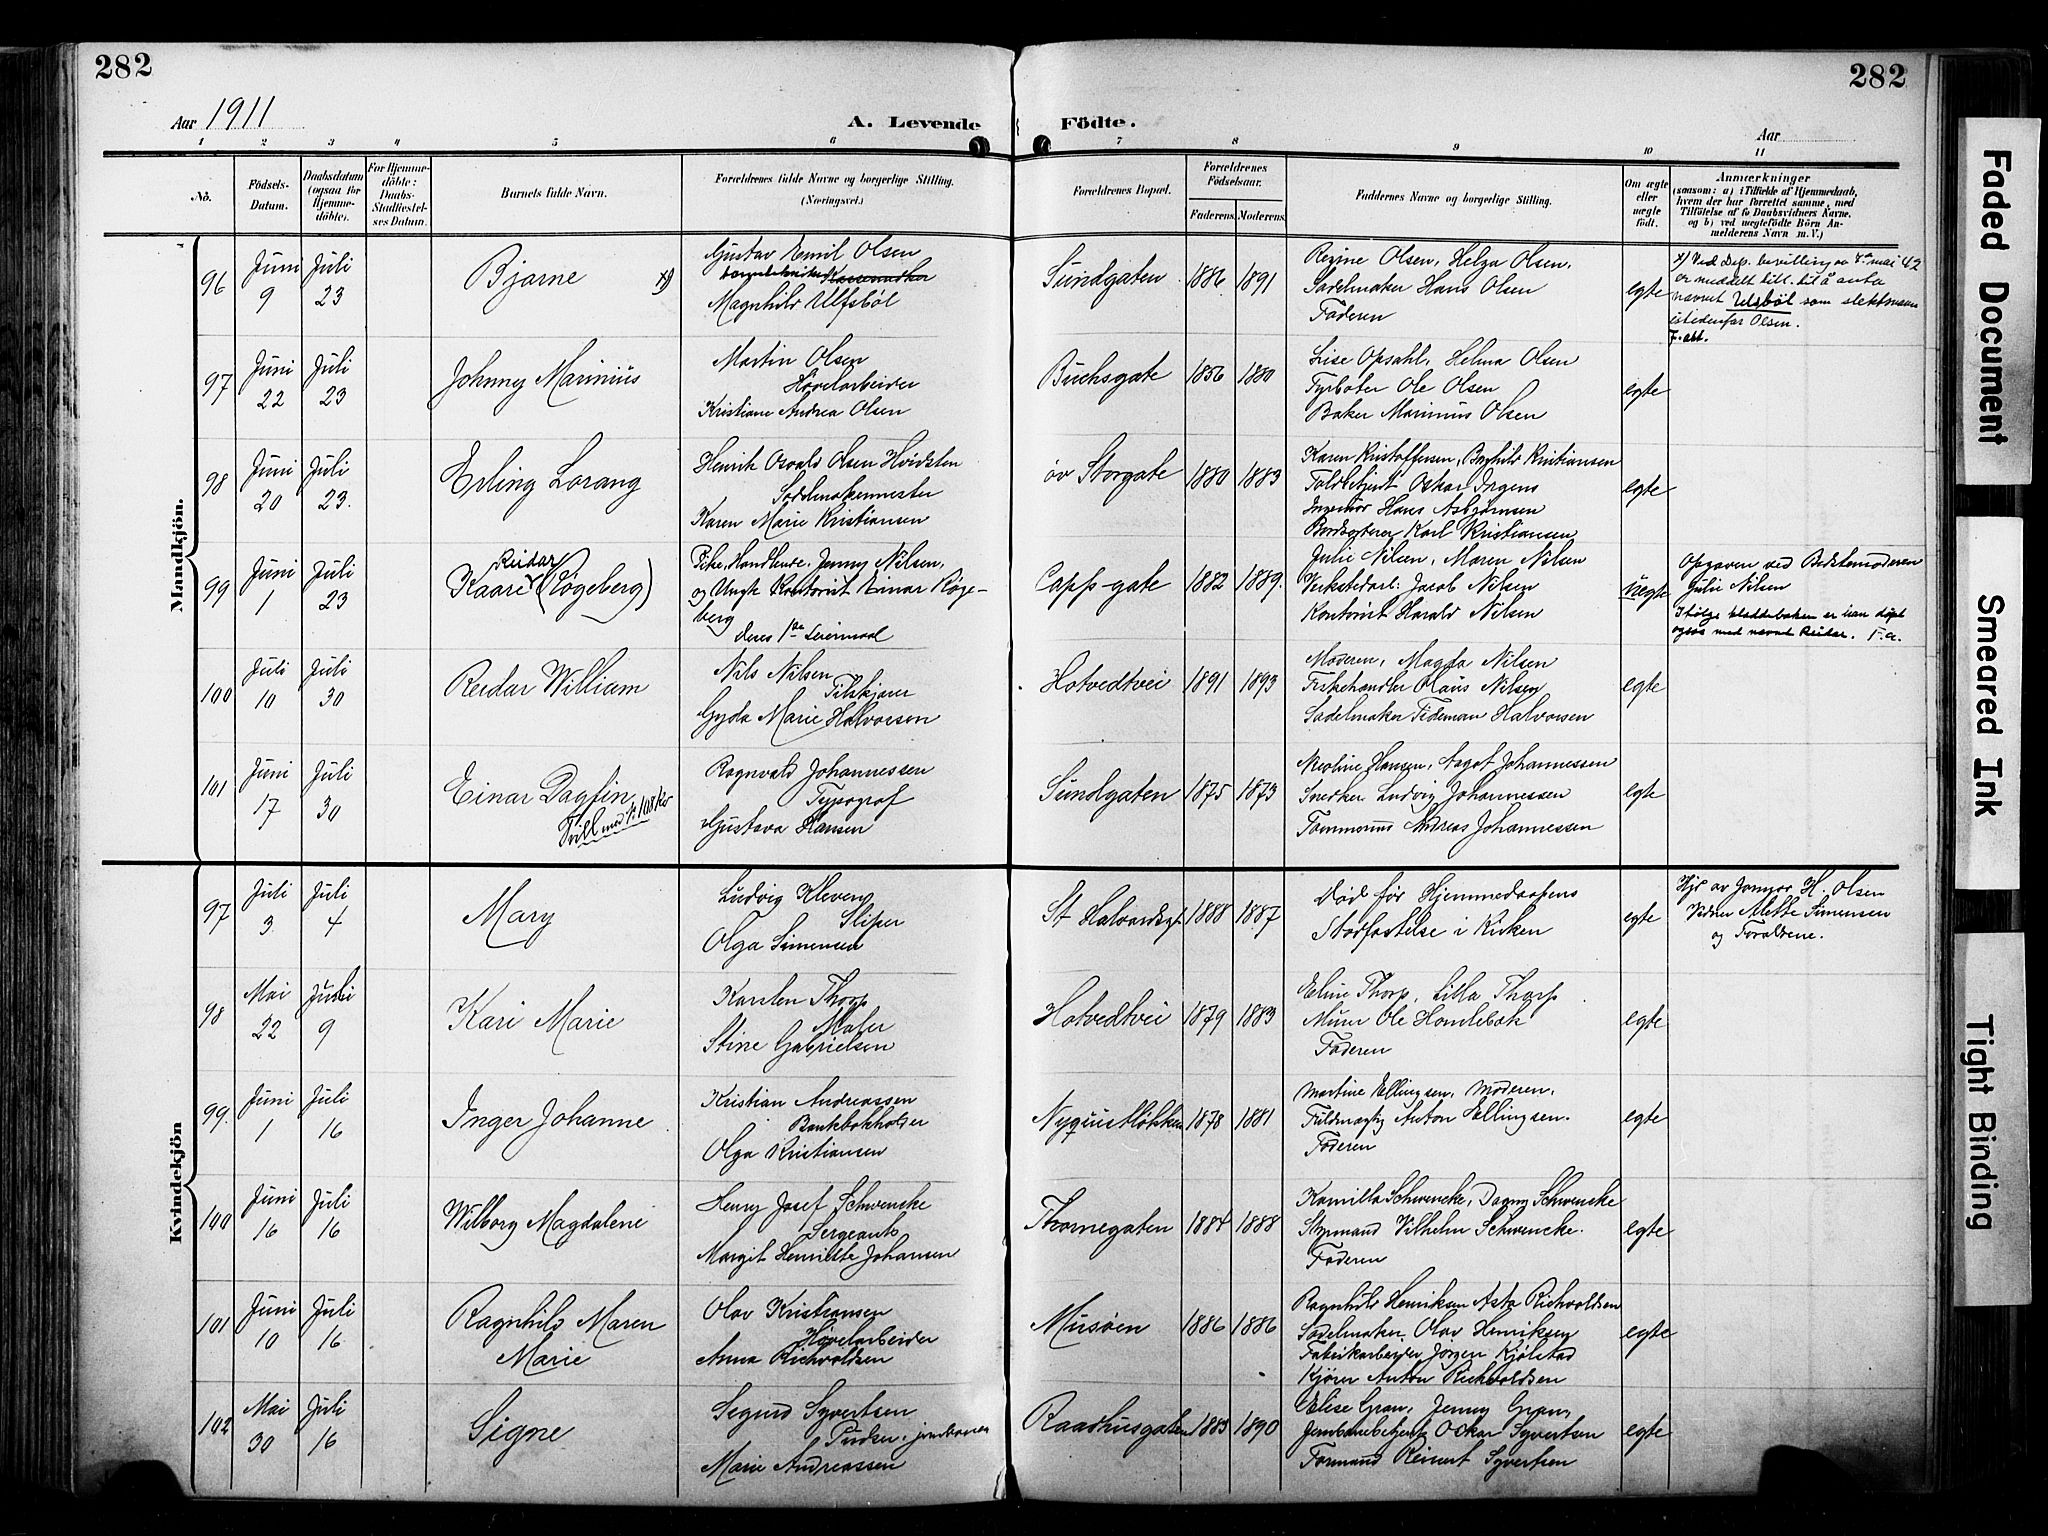 282
282
Aar 1911
A. Levende Födte.
Aar
1 2 3 4 5 6 7 8 9 10 11
No.
Födsels-Datum.
Daabsdatum (ogsaa for Hjemme-döbte).
For Hjemme-döbte: Daabs-Stadfæstel-ses Datum.
Barnets fulde Navn.
Forældrenes fulde Navne og borgerlige Stilling.
(Næringsvei.)
Forældrenes Bopæl.
Forældrenes Födselsaar.
Faderens. Moderens.
Faddernes Navne og borgerlige Stilling.
Om ægte eller uægte födt.
Anmærkninger
(saasom: a) i Tilfælde af Hjemmedaab, hvem der har forrettet samme, med Tilföielse af to Daabsvidners Navne, og b) ved uægtefödte Börn An-melderens Navn m. V.)
Mandkjön.
96
Juni 9
Juli 23
Bjarne x)
Gustav Emil Olsen
Magnhild Ulfsbøl
Sundgaten
1886 1891
Regine Olsen, Helga Olsen,
Sadelmaker Hans Olsen
Faderen
egte
x) Ved Dep. bevilling av 4de mai 42
er meddelt till. til å anta
navnet Ulsbøl som slektsnavn
istedenfor Olsen.
F. abt.
97
Juni 22
Juli 23
Johnny Marinius
Martin Olsen
Høvelarbeider
Kristiane Andrea Olsen
Buchsgate
1856 1880
Lise Opsahl, Helma Olsen
Fyrbøter Ole Olsen
Baker Marinius Olsen
egte
98
Juni 20
Juli 23.
Erling Lorang
Henrik Osvald Olsen Hvidsten
Sadelmakermester
Karen Marie Kristiansen
øv Storgate
1880 1883
Karen Kristoffersen, Borghild Kristiansen
Toldbetjent Oskar Jrgens
Ingeniør Hans Asbjørnsen
Karl Kristiansen
egte
99
Juni 1
Juli 23
Reidar
Kaare (Røgeberg)
Pike, Handlende, Jenny Nilsen,
og Ungk Kontorist Einar Røge-
berg
deres 1ste Leiermaal
Capps-gate
1882 1889.
Julie Nilsen, Maren Nilsen
Verkstedarb: Jacob Nilsen
Kontorist Harald Nilsen
uegte
Opgaven ved Bedstemoderen
Julie Nilsen
Ifølge kladdeboken er han døpt
også med navnet Reidar. F.a.
100
Juli 10
Juli 30
Reidar William
Nils Nilsen
Gyda Marie Halvorsen
Hotvedtvei
1891 1893
Moderen, Magda Nilsen
Fiskehandler Claus Nilsen
Sadelmaker Tideman Halvorsen
egte
101
Juni 17
Juli 30
Einar Dagfin
Tvill med N: 108 Kv
Ragnvald Johannessen
Typograf
Gustava Hansen
Sundgaten
1875 1873
Neoline Hansen, Aagot Johannessen
Snedker Ludvig Johannessen
Andreas Johannessen
egte
Kvindekjön
97
Juli 3
Juli 4
Mary
Ludvig Kleveng
Sliper
Olga Simensen
St Halvardsgt
1888 1887
Død før Hjemmedaapens
Stadfæstelse i Kirken
egte
Hjd av Jomfor H. Olsen
Vidner Alette Simensen
og Forældrene.
98
Mai 22
Juli 9
Kari Marie
Karsten Thorp
Maler
Stine Gabrielsen
Hotvedtvei
1879 1883
Eline Thorp, Lilla Thorp
Murer Ole Homlebæk
Faderen
egte
99.
Juni 1
Juli 16
Inger Johanne
Kristian Andreassen
Bankbokholder
Olga Kristiansen
Nygüstløkken
1878 1881
Martine Ellingsen, Moderen,
Fuldmægtig Anton Ellingsen.
Faderen
egte
100
Juni 16
Juli 16
Wilborg Magdalene
Henry Josef Schwencke
Sergeant
Margit Henriette Johansen
Thornegaten
1884 1888
Kamilla Schwencke, Dagny Schwencke
Styrmand Vilhelm Schwencke.
Faderen
egte
101
Juni 10
Juli 16
Ragnhild Maren
Marie
Olav Kristiansen
Høvelarbeider
Anna Richvoldsen
Musøen
1886 1886
Ragnhild Henriksen Asta Richvoldsen
Sadelmaker, Olav Henriksen
Fabrikarbeider Jørgen Kjølstad
Kjører Anton Richvoldsen
egte
102
Mai 30
Juli 16
Signe
Sigurd Syvertsen
Pudser, jernbanen
Marie Andreassen
Raadhusgaten
1883 1890
Elise Gran, Jenny Gran,
Jernbanebetjent Oskar Syvertsen
Formand Reinert Syvertsen
egte
Faded Document
Smeared Ink
Tight Binding